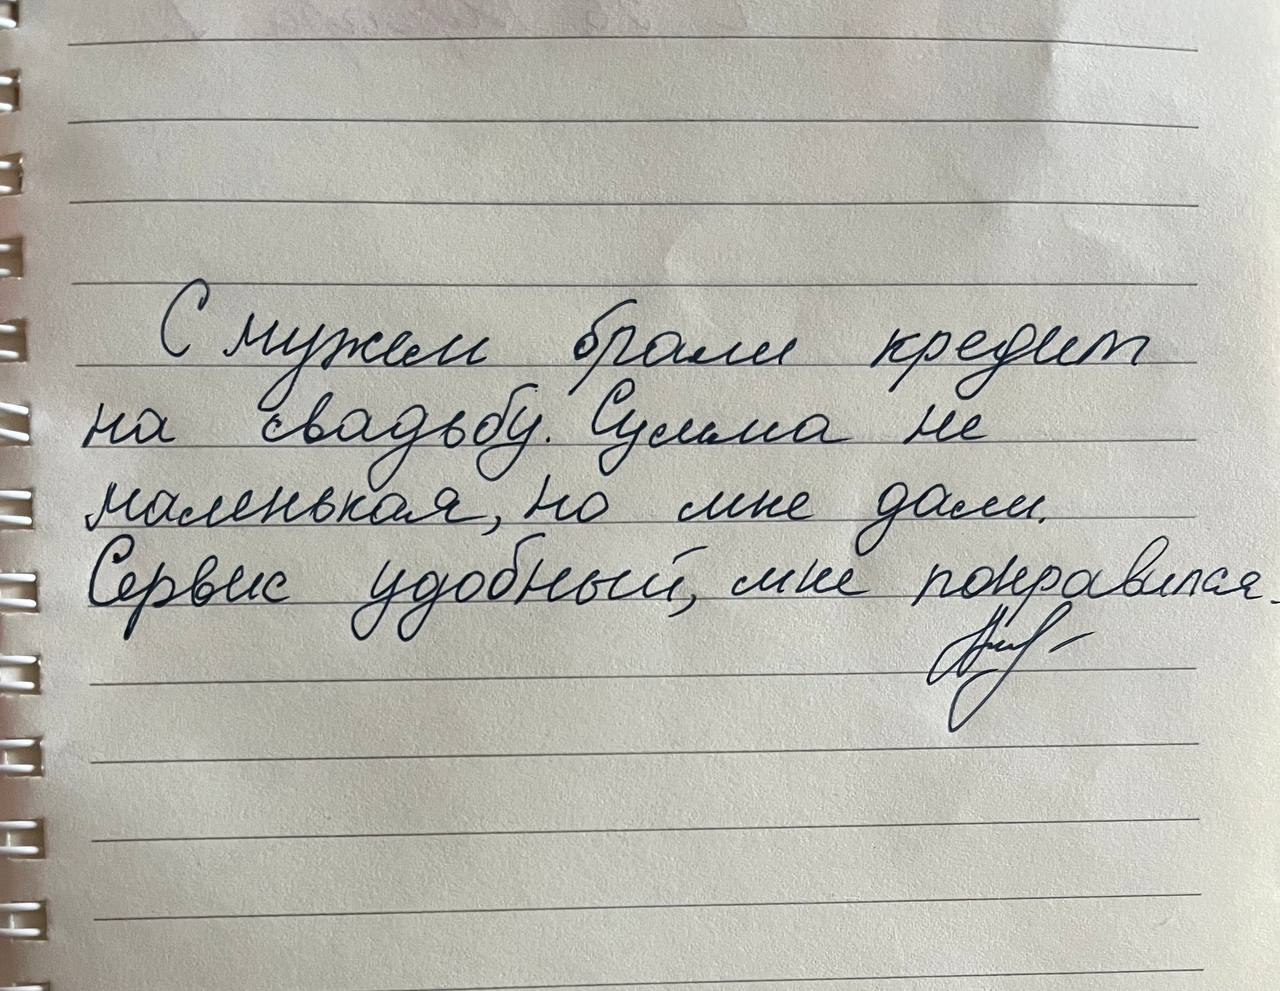 С мужем брали кредит
на свадьбу. Сумма не
маленькая, но мне дали.
Сервис удобный, мне понравился.